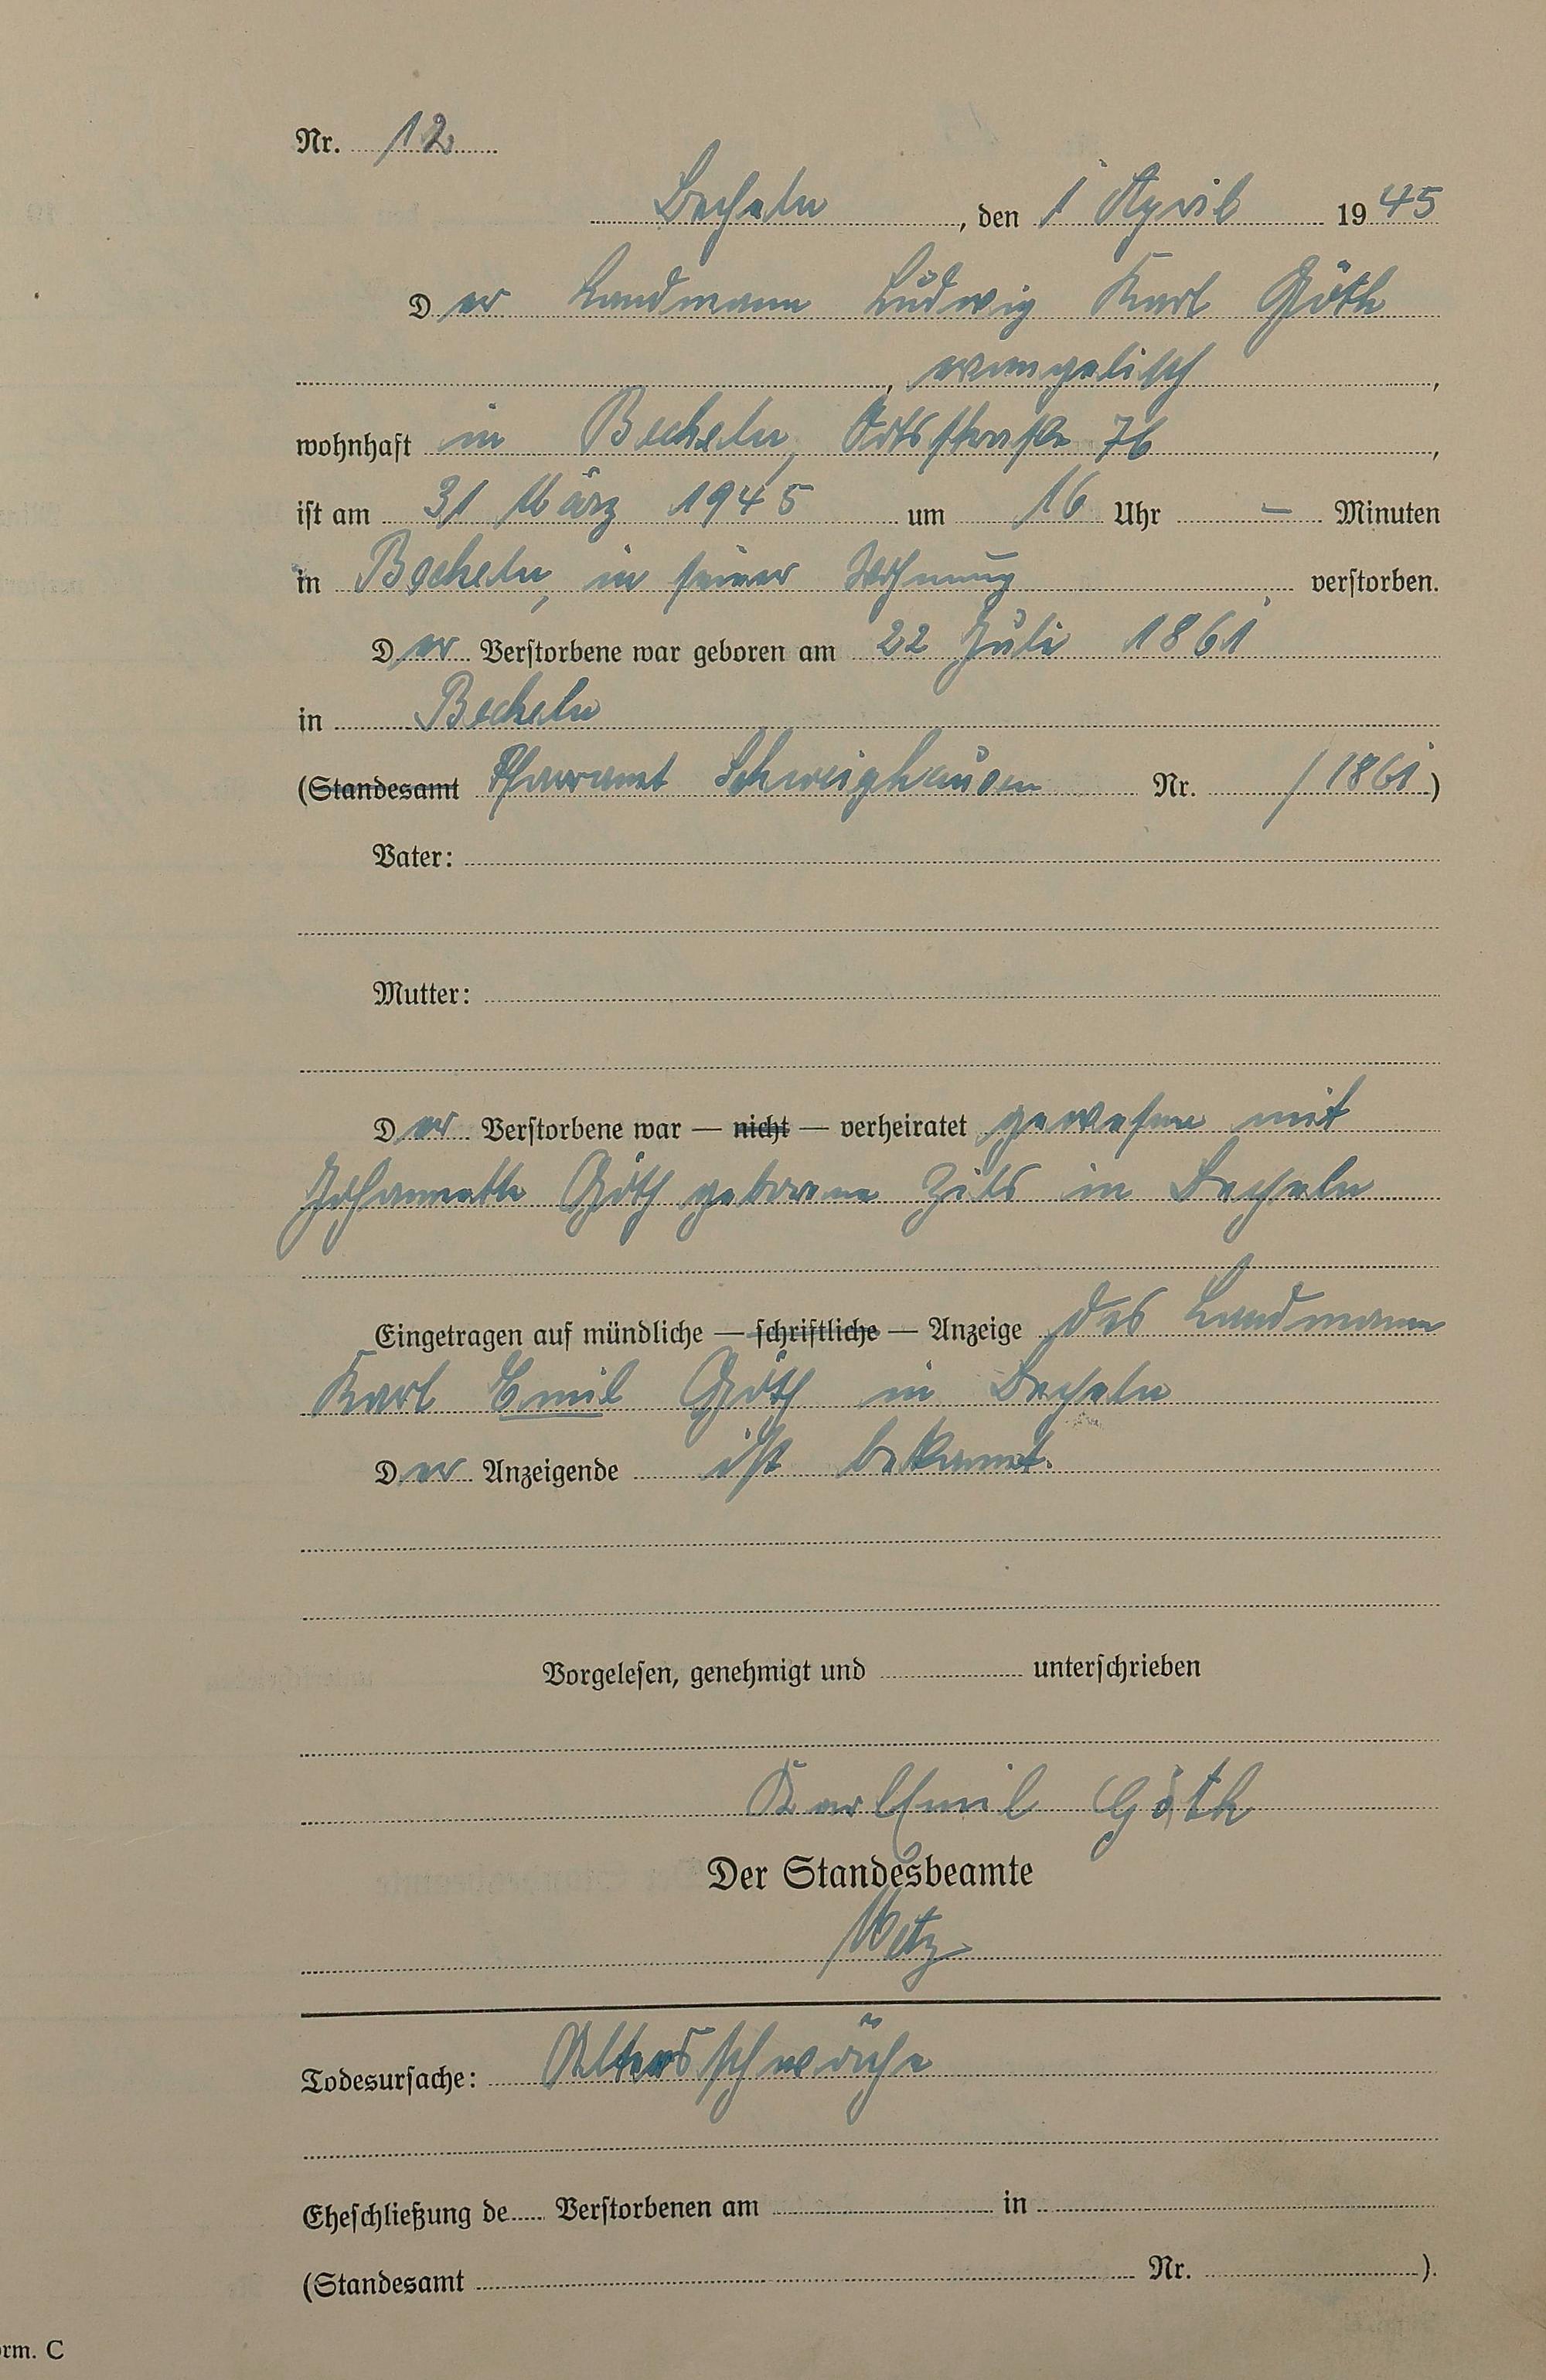 Nr. 12
Becheln, den 1 April 1945
Der Landmann Ludwig Karl Göth
, evangelisch,
wohnhaft in Becheln, Ortsstraße 76,
ist am 31 März 1945 um 16 Uhr – Minuten
in Becheln, in seiner Wohnung verstorben.
Der Verstorbene war geboren am 22 Juli 1861
in Becheln
(Standesamt Pfarramt Schweighausen Nr. /1861)
Vater:
Mutter:
Der Verstorbene war — nicht — verheiratet gewesen mit
Johannette Göth geborene Zils in Becheln
Eingetragen auf mündliche — schriftliche — Anzeige des Landmann
Karl Emil Göth in Becheln
Der Anzeigende ist bekannt.
Vorgelesen, genehmigt und unterschrieben
Karl Emil Göth
Der Standesbeamte
Metz
Todesursache: Altersschwäche
Eheschließung de Verstorbenen am in
(Standesamt Nr. ).
orm. C